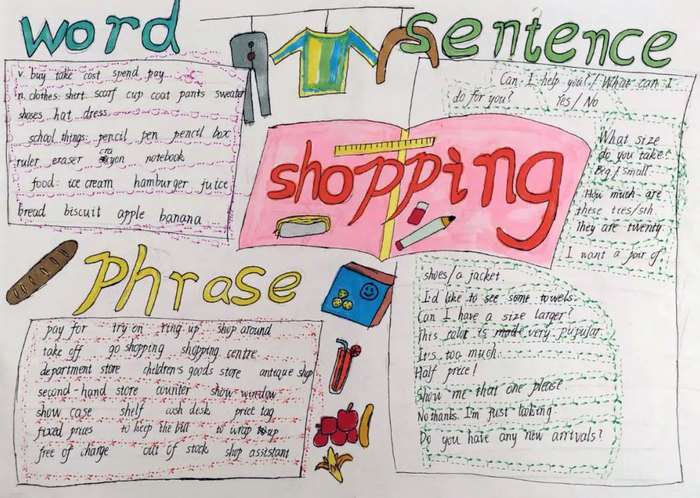 word
v. buy take cost spend pay
n. clothes: shirt scarf cup coat pants sweater
shoes hat dress
school things: pencil pen pencil box
ruler eraser crayon notebook
food: ice cream hamburger juice
bread biscuit apple banana
shopping
sentence
Can I help you? / What can I
do for you? Yes / No
What size
do you take?
Big / small
How much are
these ties/sth.
They are twenty
I want a pair of
shoes / a jacket.
I'd like to see some towels.
Can I have a size larger?
This color is very pupular.
It's too much.
Half price!
Show me that one please
No thanks. I'm Just looking
Do you have any new arrivals?
phrase
pay for try on ring up shop around
take off go shopping shopping centre
department store children's goods store antique shop
second-hand store counter show window
show case shelf cash desk price tag
fixed prices to keep the bill to wrap up
free of charge out of stock shop assistant